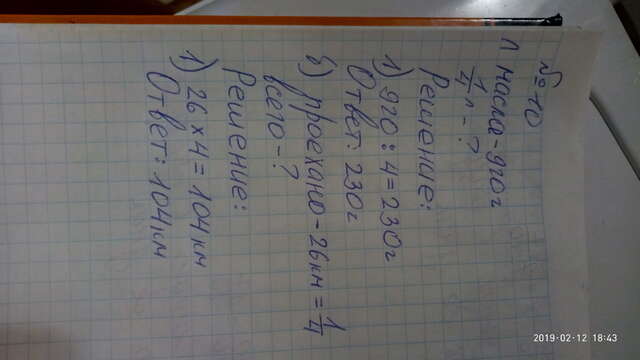 №10
Л масла - 920г
1/4 л - ?
Решение:
1) 920 : 4 = 230г
Ответ: 230г
б) проехано - 26км = 1/4
всего - ?
Решение:
1) 26 х 4 = 104км
Ответ: 104км
2019-02-12 18:43